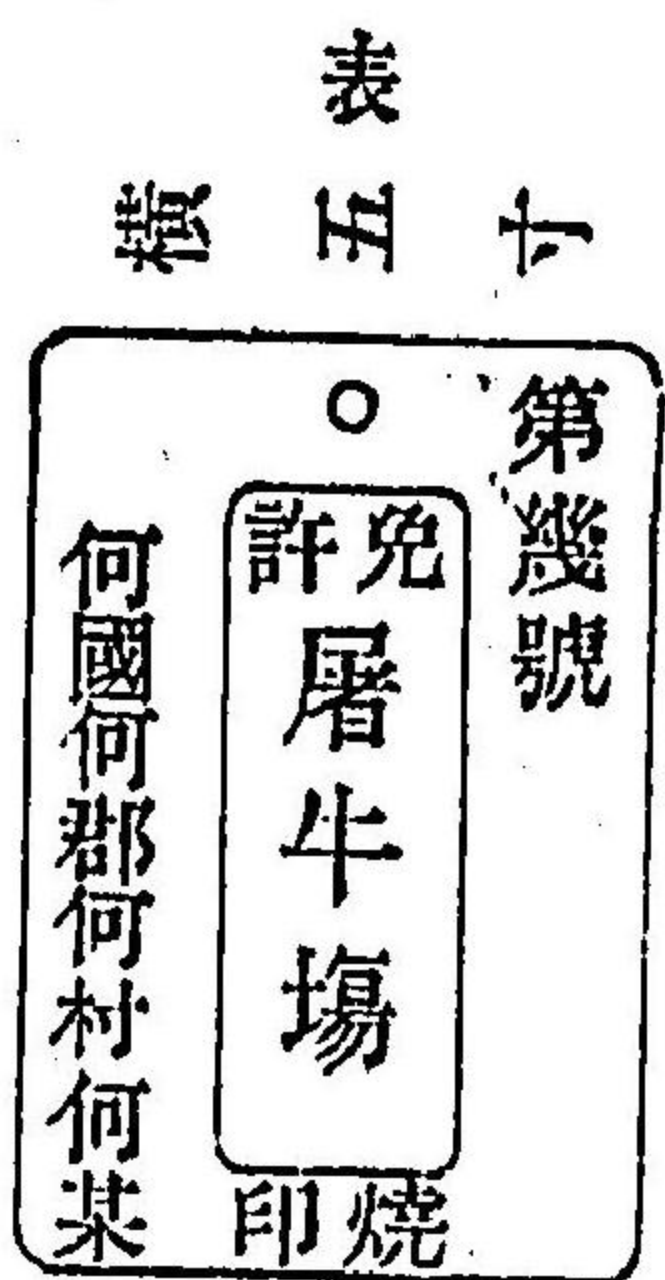 表
横五寸
第幾號
免許
屠牛塲
燒印
何國何郡何村何某